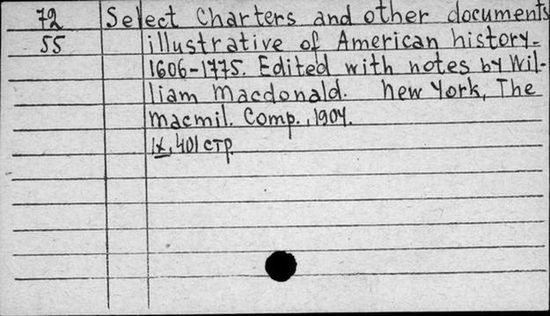 72 Select Charters and other documents
55 illustrative of American history-
1606-1775. Edited with notes by Wil-
liam Macdonald. New York, The
Macmil. Comp., 1904.
IX, 401 стр.